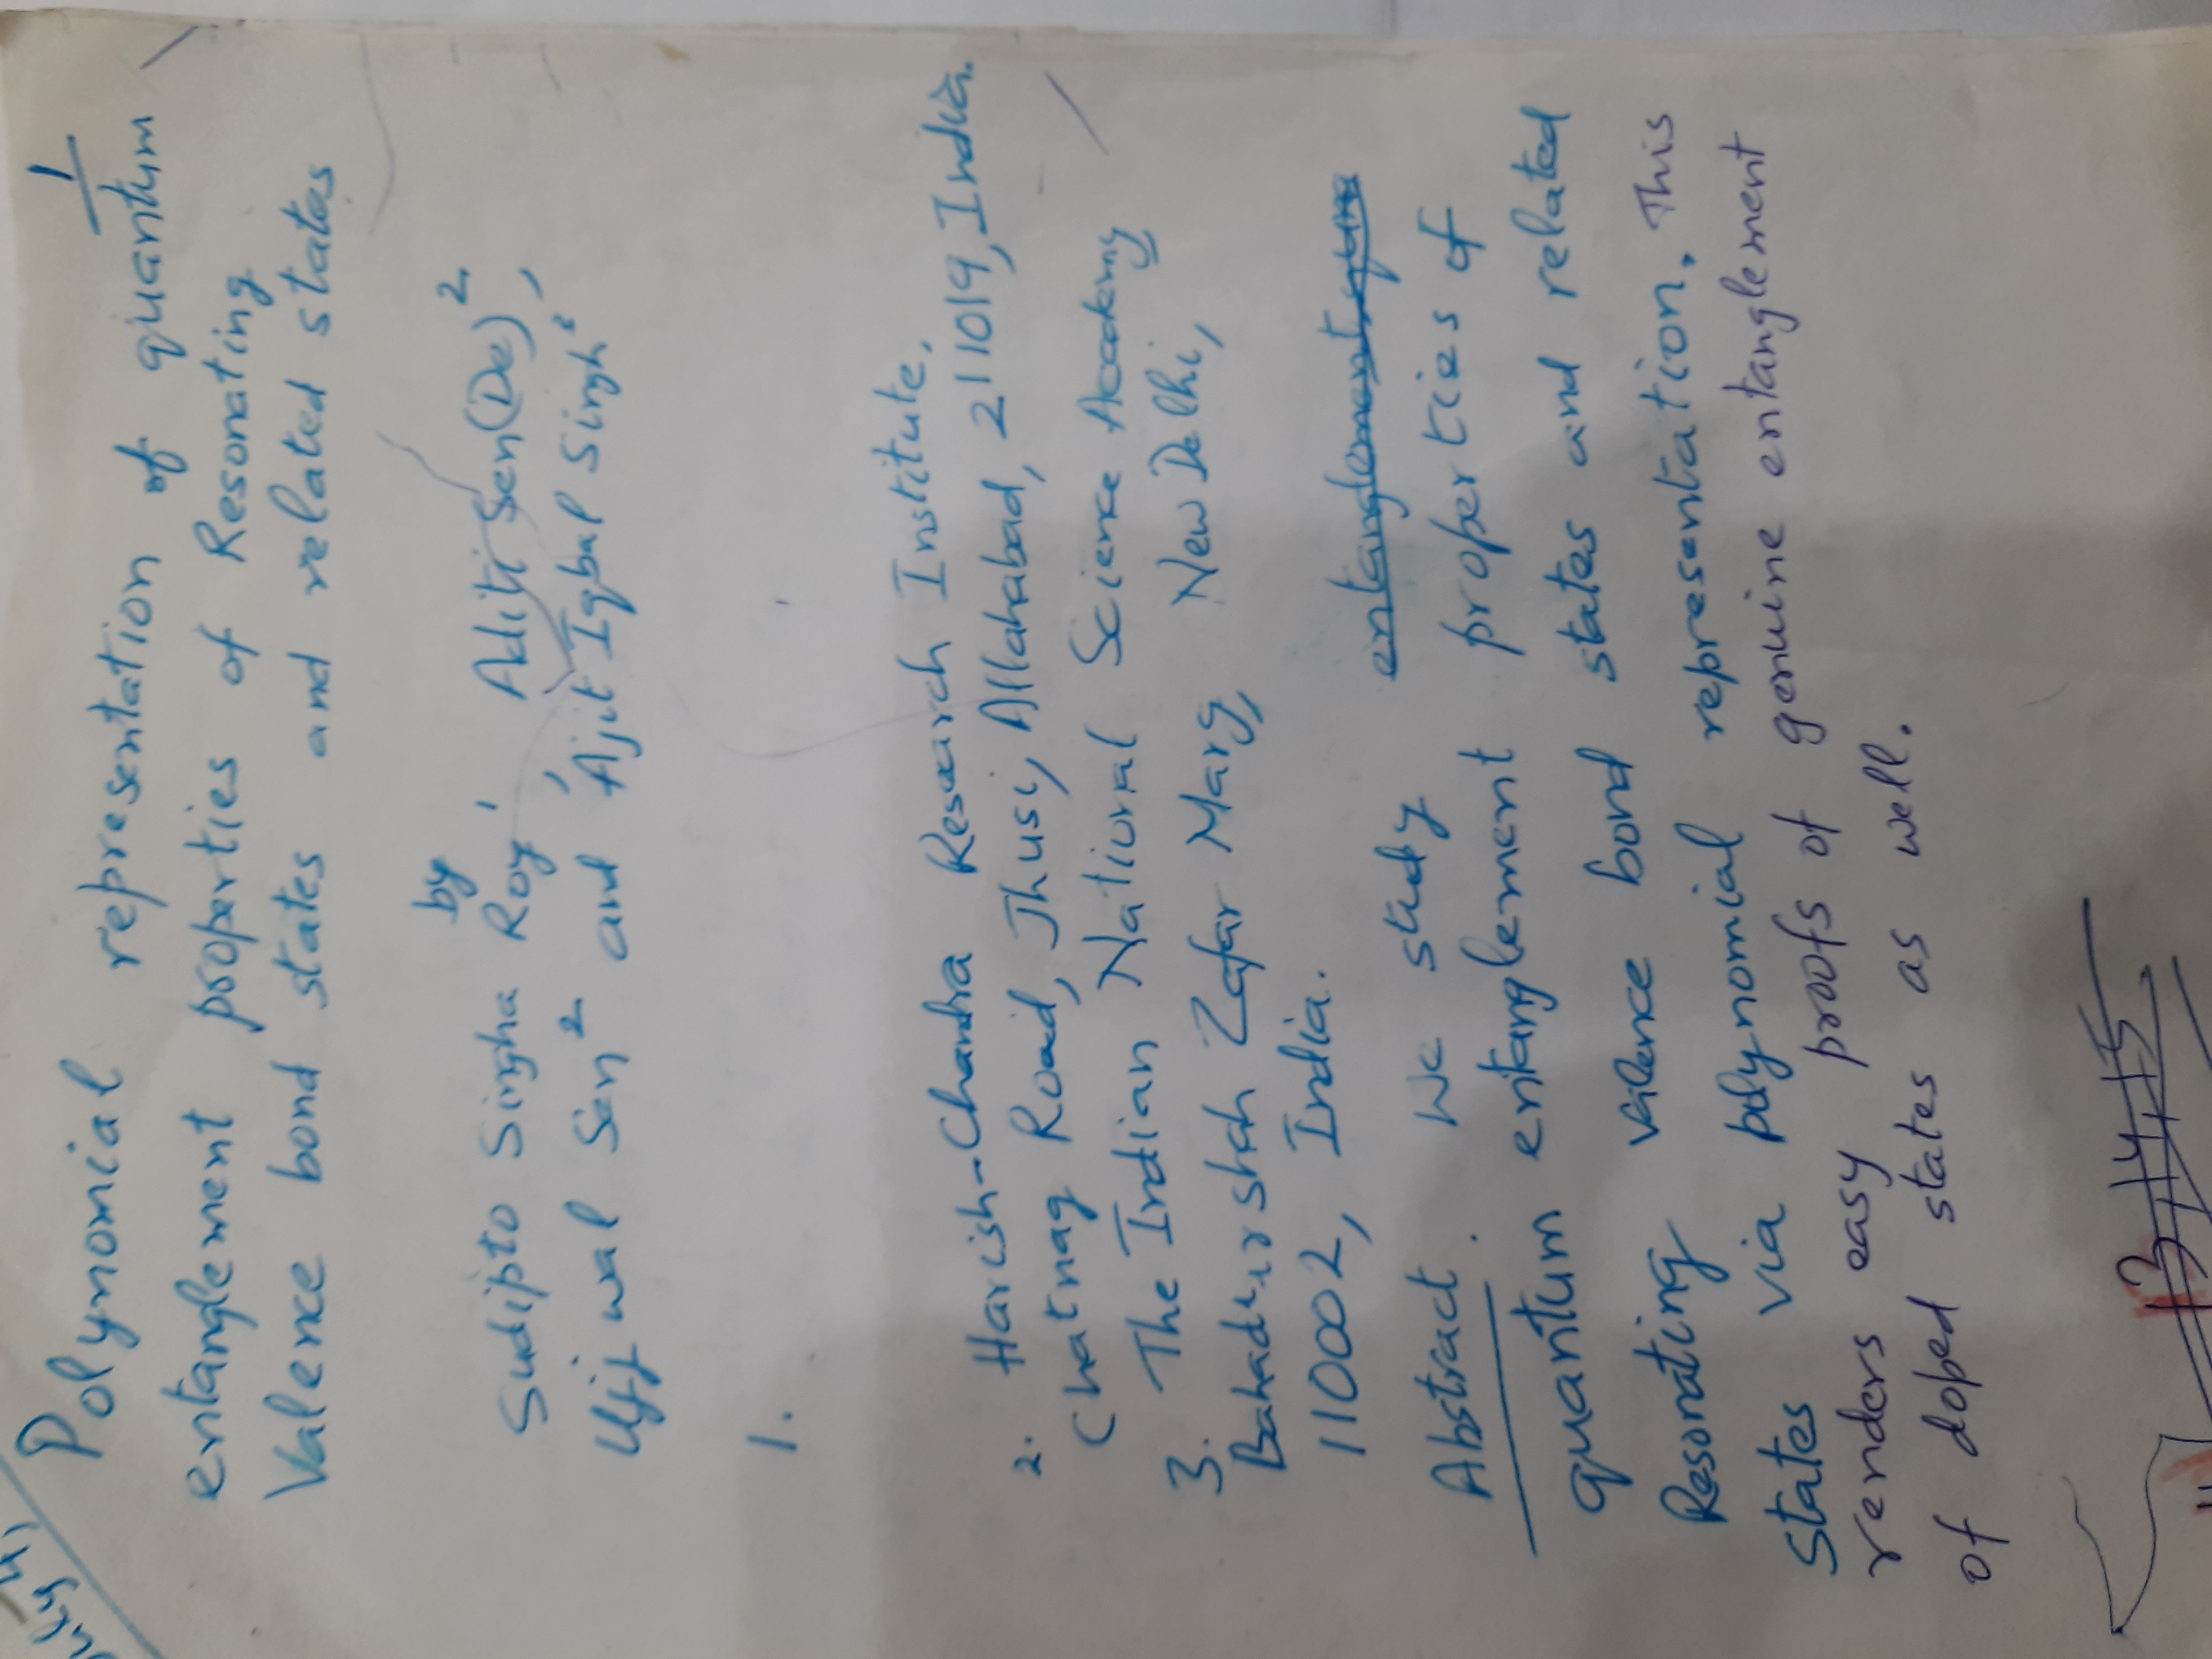 July 4,
1
Polynomial representation of quantum
entanglement properties of Resonating
Valence bond states and related states
by
Sudipto Singha Roy¹, Aditi Sen(De)²,
Ujjwal Sen² and Ajit Iqbal Singh
1.
2. Harish-Chandra Research Institute,
Chatnag Road, Jhusi, Allahabad, 211019, India.
3. The Indian National Science Academy
Bahadur shah Zafar Marg, New Delhi,
110002, India.
Abstract. We study entanglement
quantum entanglement properties of
Resonating Valence bond states and related
states via polynomial representation. This
renders easy proofs of genuine entanglement
of doped states as well.
13, 14, 15